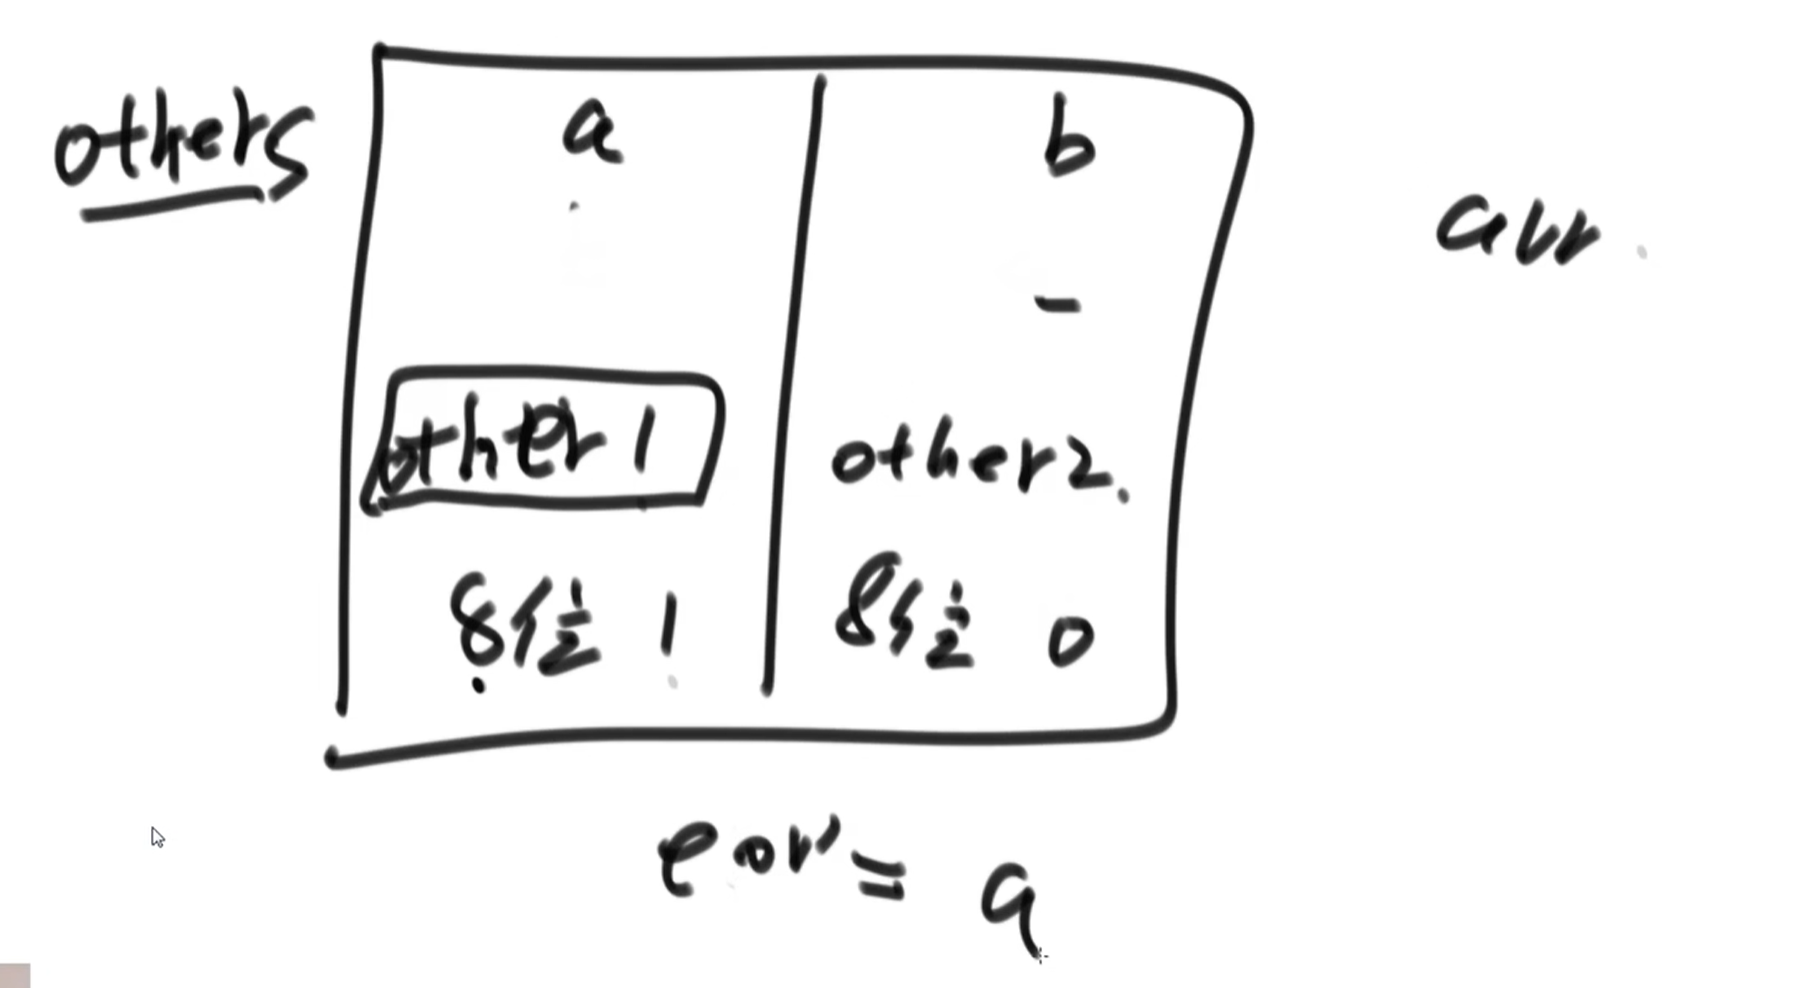 others
a b
arr
other1 other2.
8位 1 8位 0
eor' = a